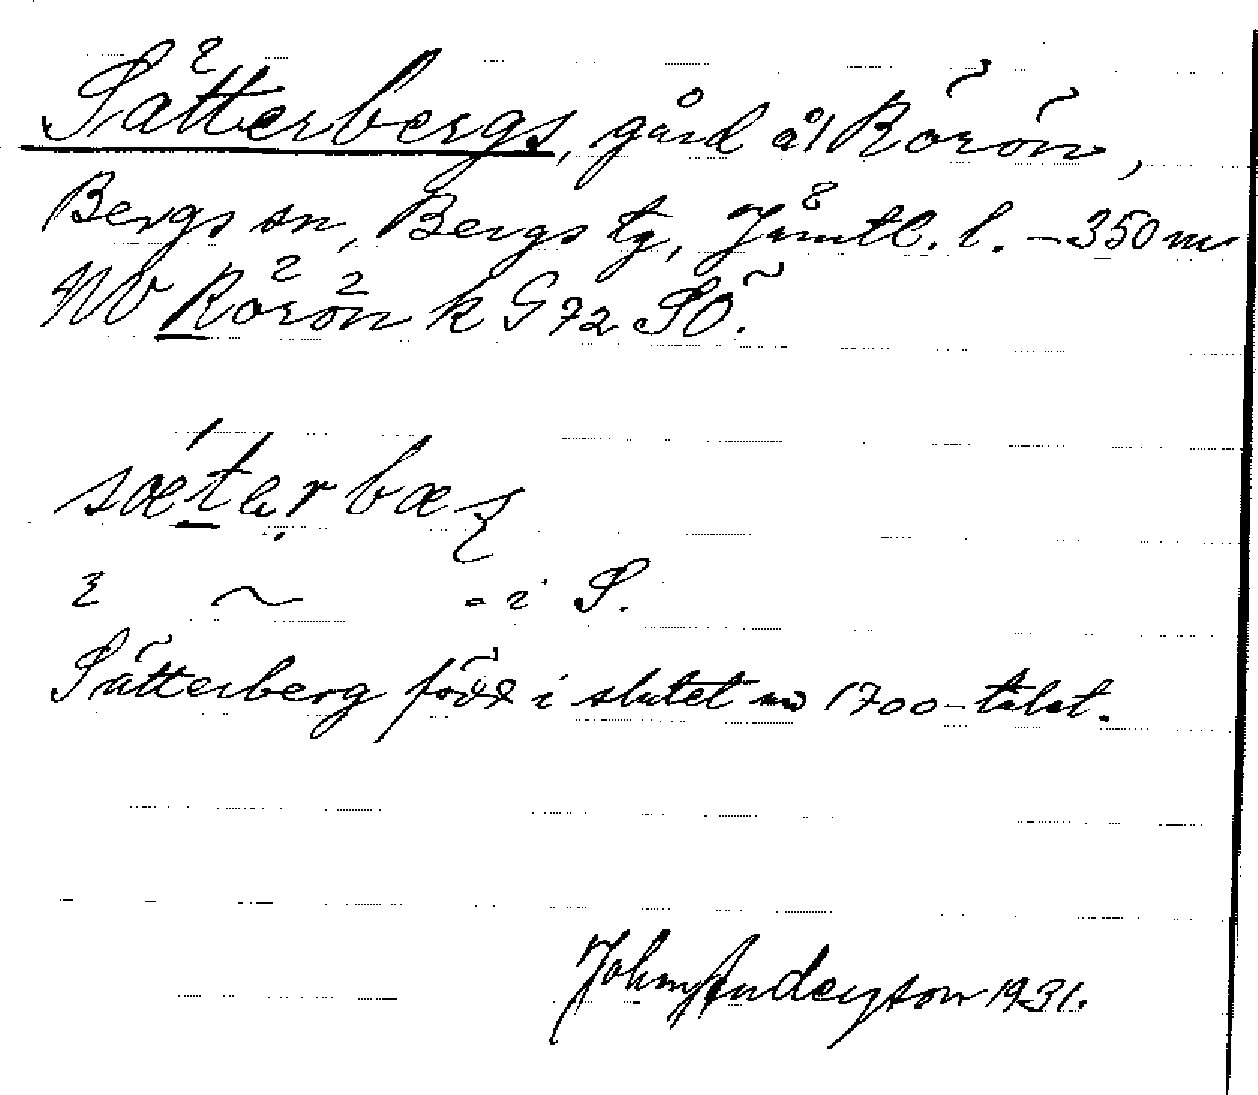 Sätterbergs, gård åt Börön,
Bergs sn, Bergs tg, Jämtl. l. – 350 m
NV Rörön k G 72 SÖ.
sætərbæʂ
2 ~ - i S.
Sätterberg född i slutet av 1700-talet.
Johnny Andersson 1931.